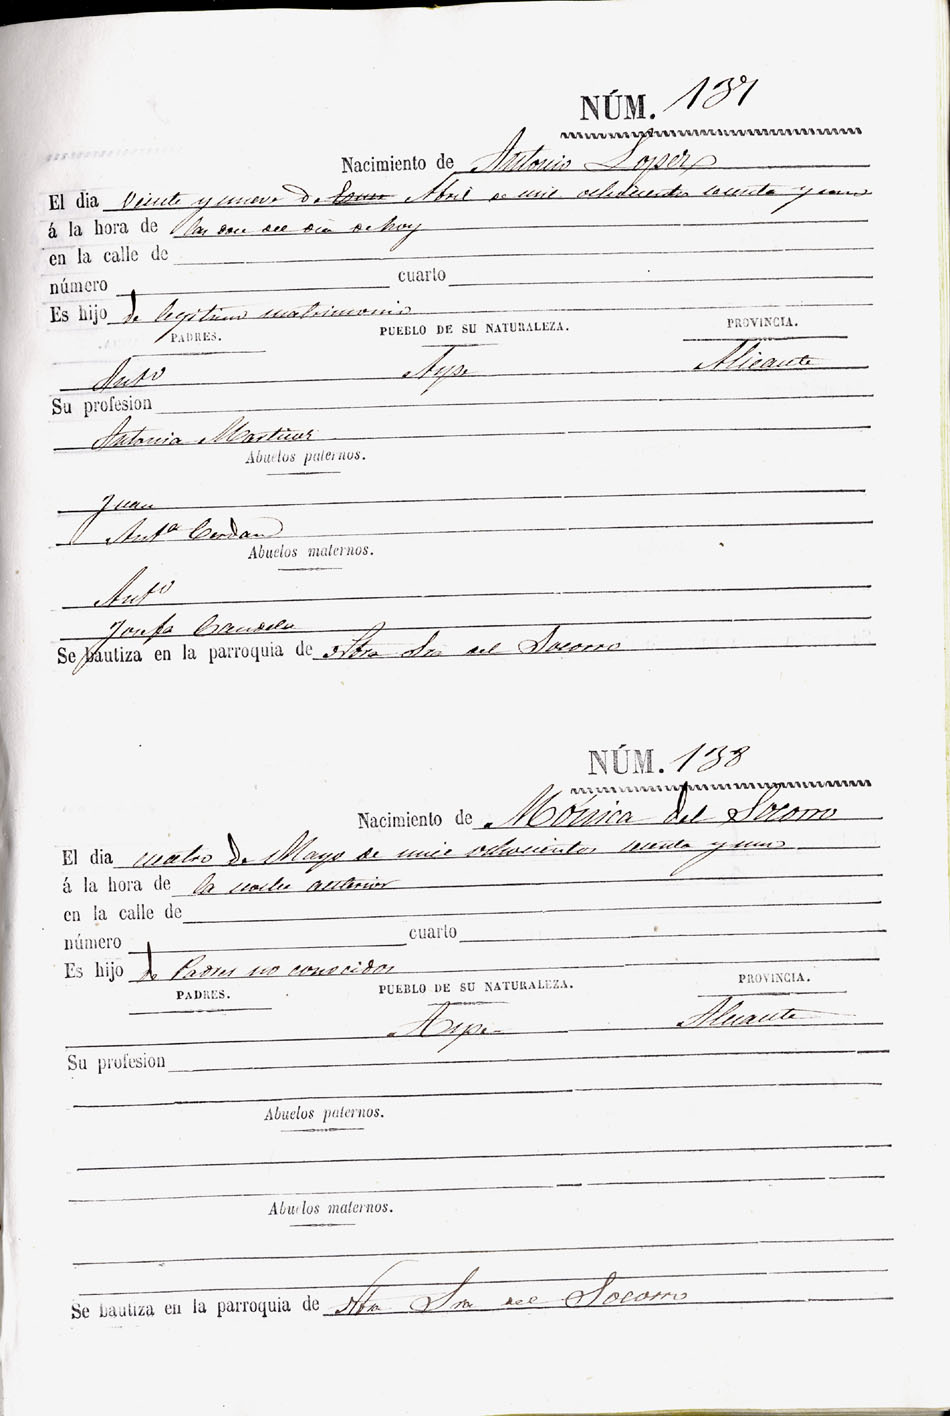 NÚM. 137
Nacimiento de Antonio Lopez
El dia veinte y nueve de Enero Abril de mil ochocientos sesenta y uno
á la hora de las doce del dia de hoy
en la calle de
número cuarto
Es hijo de legitimo matrimonio
PADRES. PUEBLO DE SU NATURALEZA. PROVINCIA.
Antº Aspe Alicante
Su profesion
Antonia Martinez
Abuelos paternos.
Juan
Antª Cerdan
Abuelos maternos.
Antº
Josefa Candela
Se bautiza en la parroquia de Ntra Sra del Socorro
NÚM. 138
Nacimiento de Mónica del Socorro
El dia cuatro de Mayo de mil ochocientos sesenta y uno
á la hora de la noche anterior
en la calle de
número cuarto
Es hijo de Padres no conocidos
PADRES. PUEBLO DE SU NATURALEZA. PROVINCIA.
Aspe Alicante
Su profesion
Abuelos paternos.
Abuelos maternos.
Se bautiza en la parroquia de Ntra Sra del Socorro